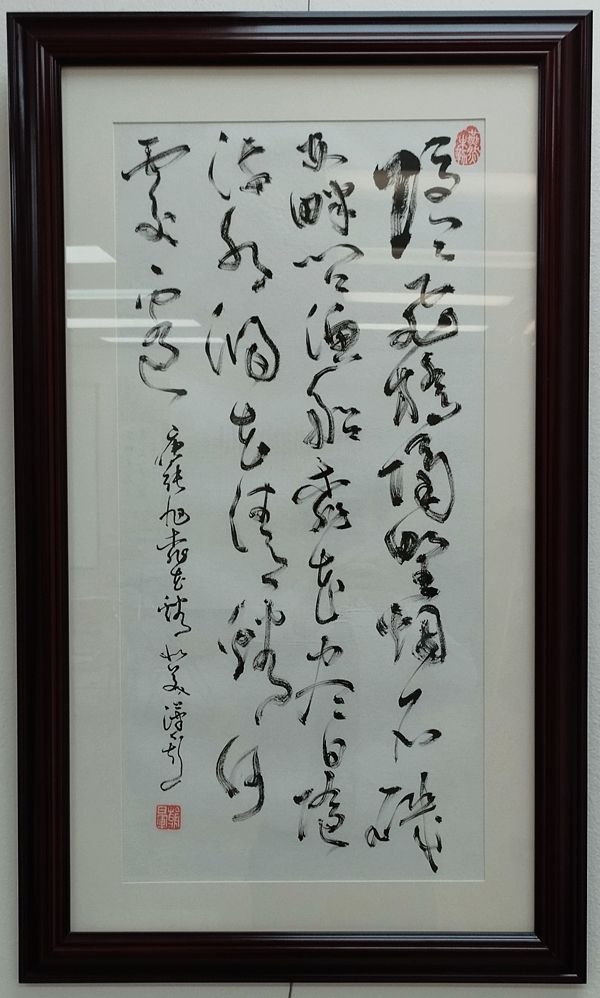 隱隱飛橋隔野烟石磯
西畔问渔船桃花尽日随
流水洞在清谿何
處邊
唐張旭桃花谿